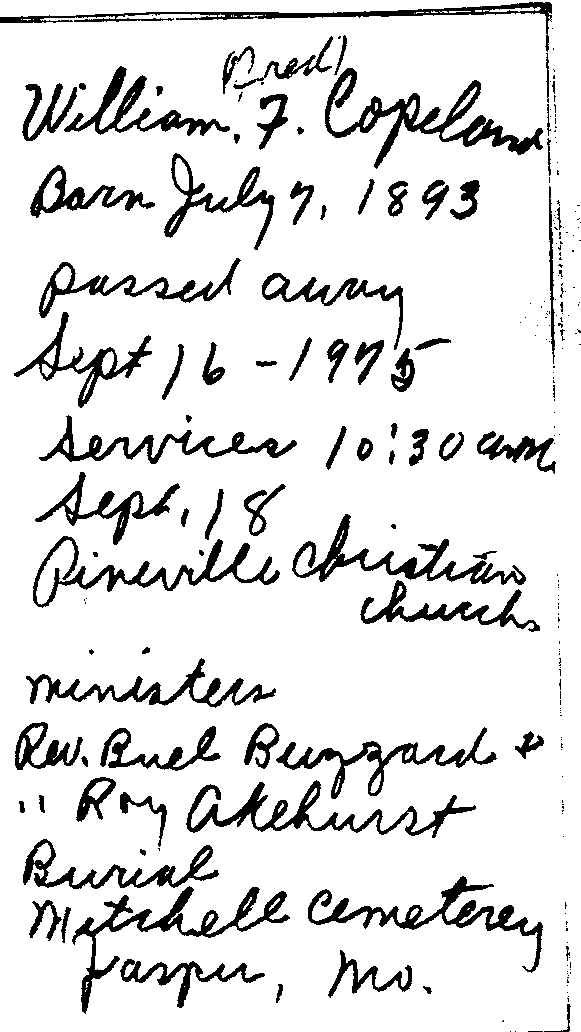 (Fred)
William. F. Copeland
Born July 7, 1893
passed away
Sept 16 - 1975
Services 10:30 a.m.
Sept. 18
Pineville Christian
church
ministers
Rev. Buel Buzzard &
" Roy Akehurst
Burial
Mitchell Cemeterey
Jasper, Mo.